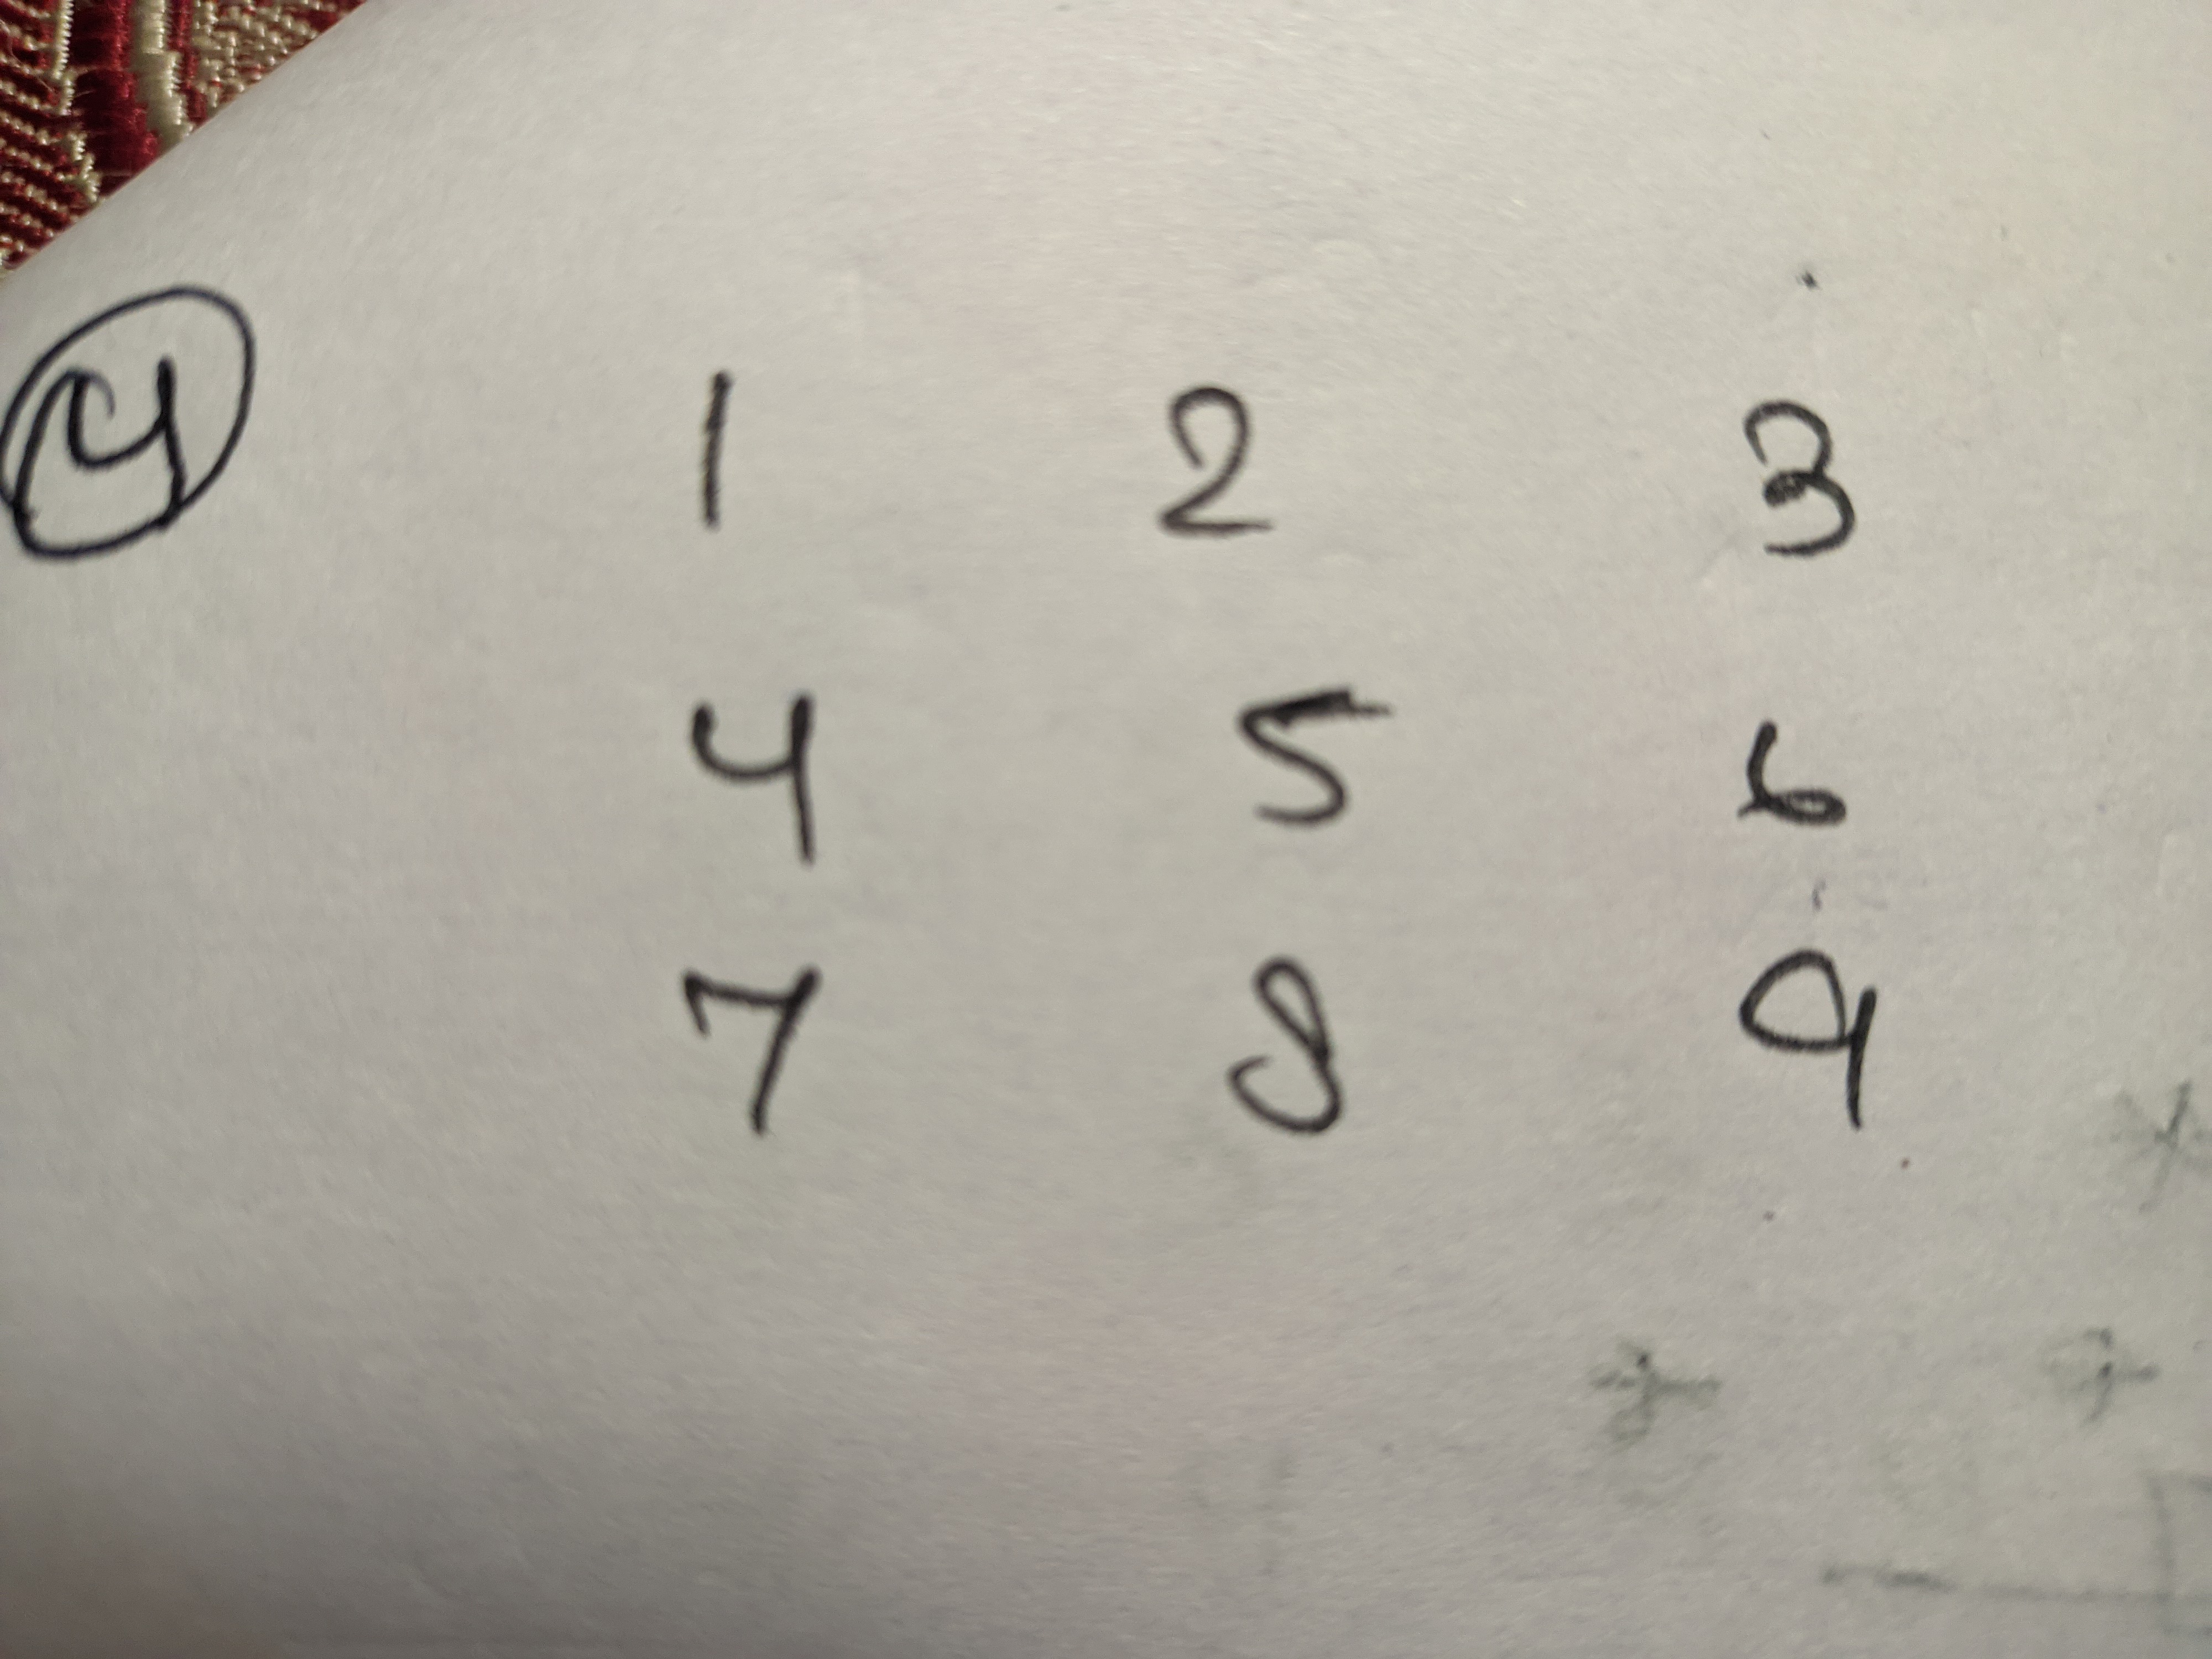 4 1 2 3
4 5 6
7 8 9